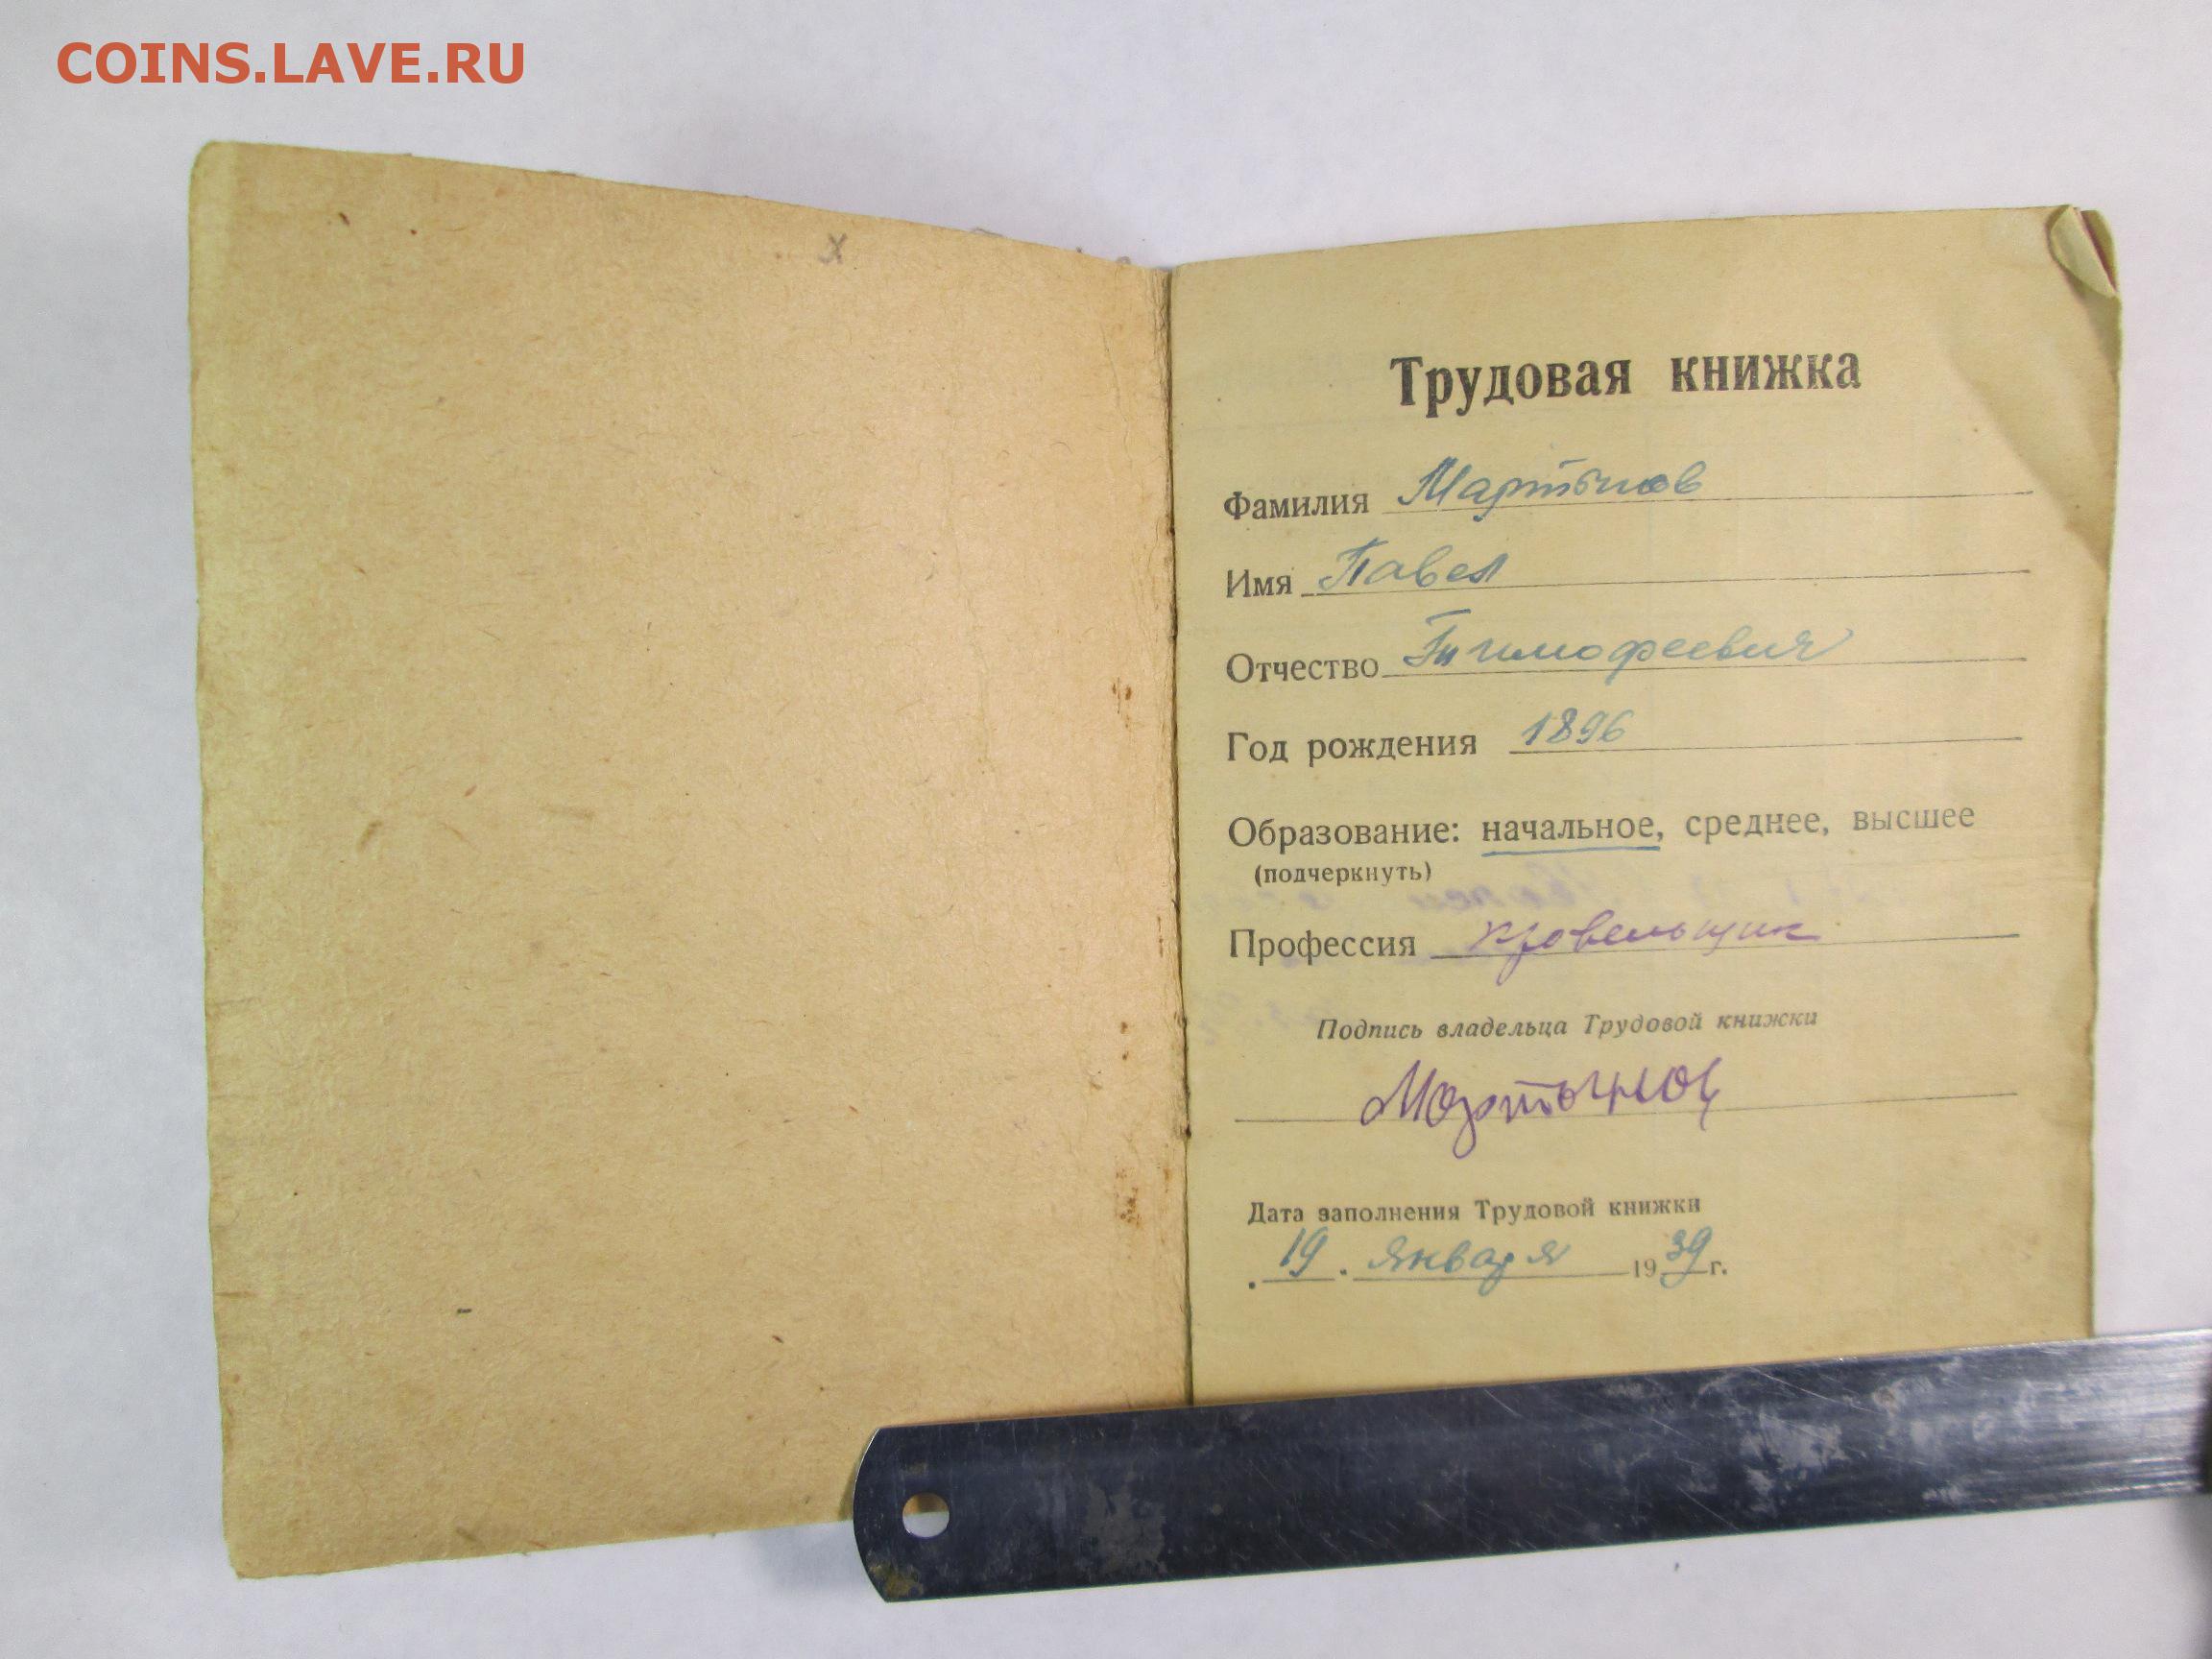 COINS.LAVE.RU
х
Трудовая книжка
Фамилия Мартынов
Имя Павел
Отчество Тимофеевич
Год рождения 1896
Образование: начальное, среднее, высшее
(подчеркнуть)
Профессия кровельщик
Подпись владельца Трудовой книжки
Мартынов
Дата заполнения Трудовой книжки
19 января 1939 г.